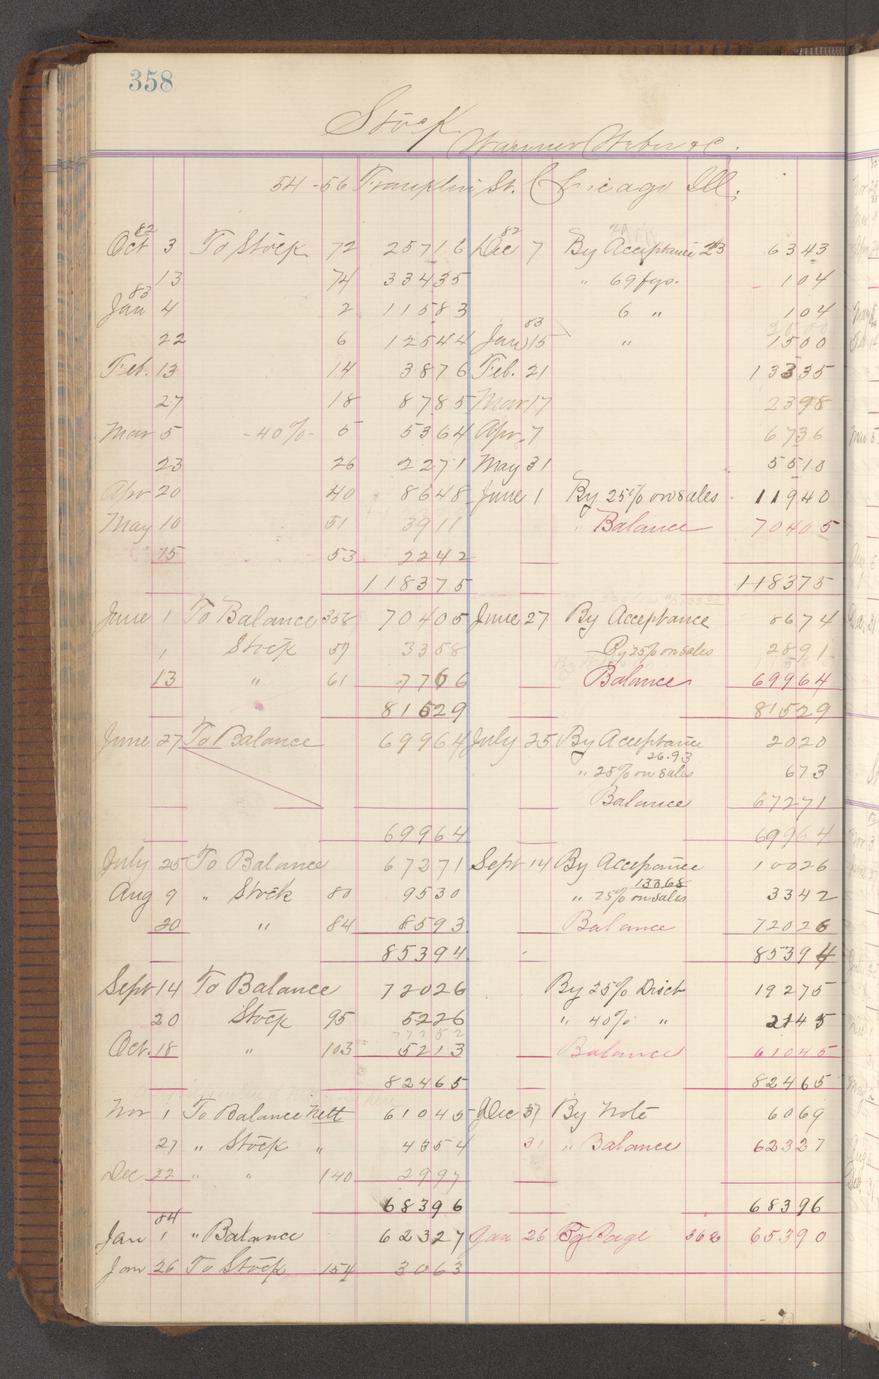 358
Stock
Warner Weber & C.
54-56 Franklin St. Chicago Ill.
82 82
Oct 3 To Stock 72 25716 Dec 7 By Acceptance 23 6343
13 74 33435 " 69 fgs. 104
83
Jan 4 2 11583 6 " 104
83
22 6 12544 Jan 15 " 1500
Feb. 13 14 3876 Feb. 21 13335
27 18 8785 Mar 17 2398
Mar 5 -40%- 5 5364 Apr. 7 6736
23 26 2271 May 31 5510
Apr 20 40 8648 June 1 By 25% on sales 11940
May 10 51 3911 " Balance 70405
15 53 2242
118375 118375
June 1 To Balance 358 70405 June 27 By Acceptance 8674
1 Stock 57 3358 By 25% on sales 2891
13 " 61 7766 Balance 69964
81529 81529
June 27 To Balance 69964 July 25 By Acceptance 2020
26.93
" 25% on sales 673
Balance 67271
69964 69964
July 25 To Balance 67271 Sept 14 By Acceptance 10026
13368
Aug 9 " Stock 80 9530 " 25% on sales 3342
20 " 84 8593 Balance 72026
85394 85394
Sept 14 To Balance 72026 By 25% Disct 19275
20 Stock 95 5226 " 40% " 2145
77252
Oct. 18 " 103 5213 Balance 61045
82465 82465
Nov 1 To Balance Nett 61045 Dec 31 By Note 6069
27 " Stock " 4354 31 " Balance 62327
Dec 22 " " 140 2997
68396 68396
84
Jan 1 " Balance 62327 Jan 26 By Page 362 65390
Jan 26 To Stock 154 3063